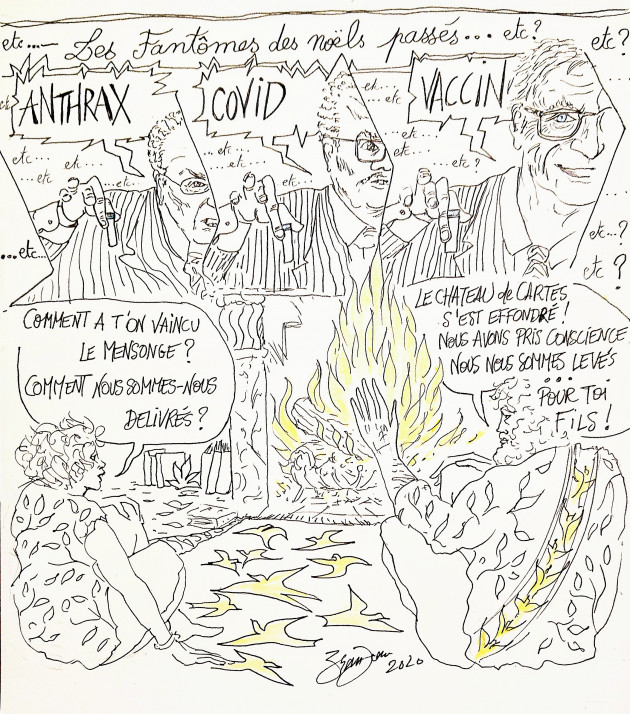 etc...— Les Fantômes des noëls passés... etc?
etc?
ANTHRAX
COVID
VACCIN
etc...
et...
...etc
...etc...
etc...
et...
etc...
etc...
...etc
etc...
etc...
...etc?
...etc...
etc..?
etc?
COMMENT A T'ON VAINCU
LE MENSONGE ?
COMMENT NOUS SOMMES-NOUS
DELIVRÉS ?
LE CHATEAU de CARTES
S'EST EFFONDRÉ !
NOUS AVONS PRIS CONSCIENCE
NOUS NOUS SOMMES LEVÉS
...
POUR TOI
FILS !
2020